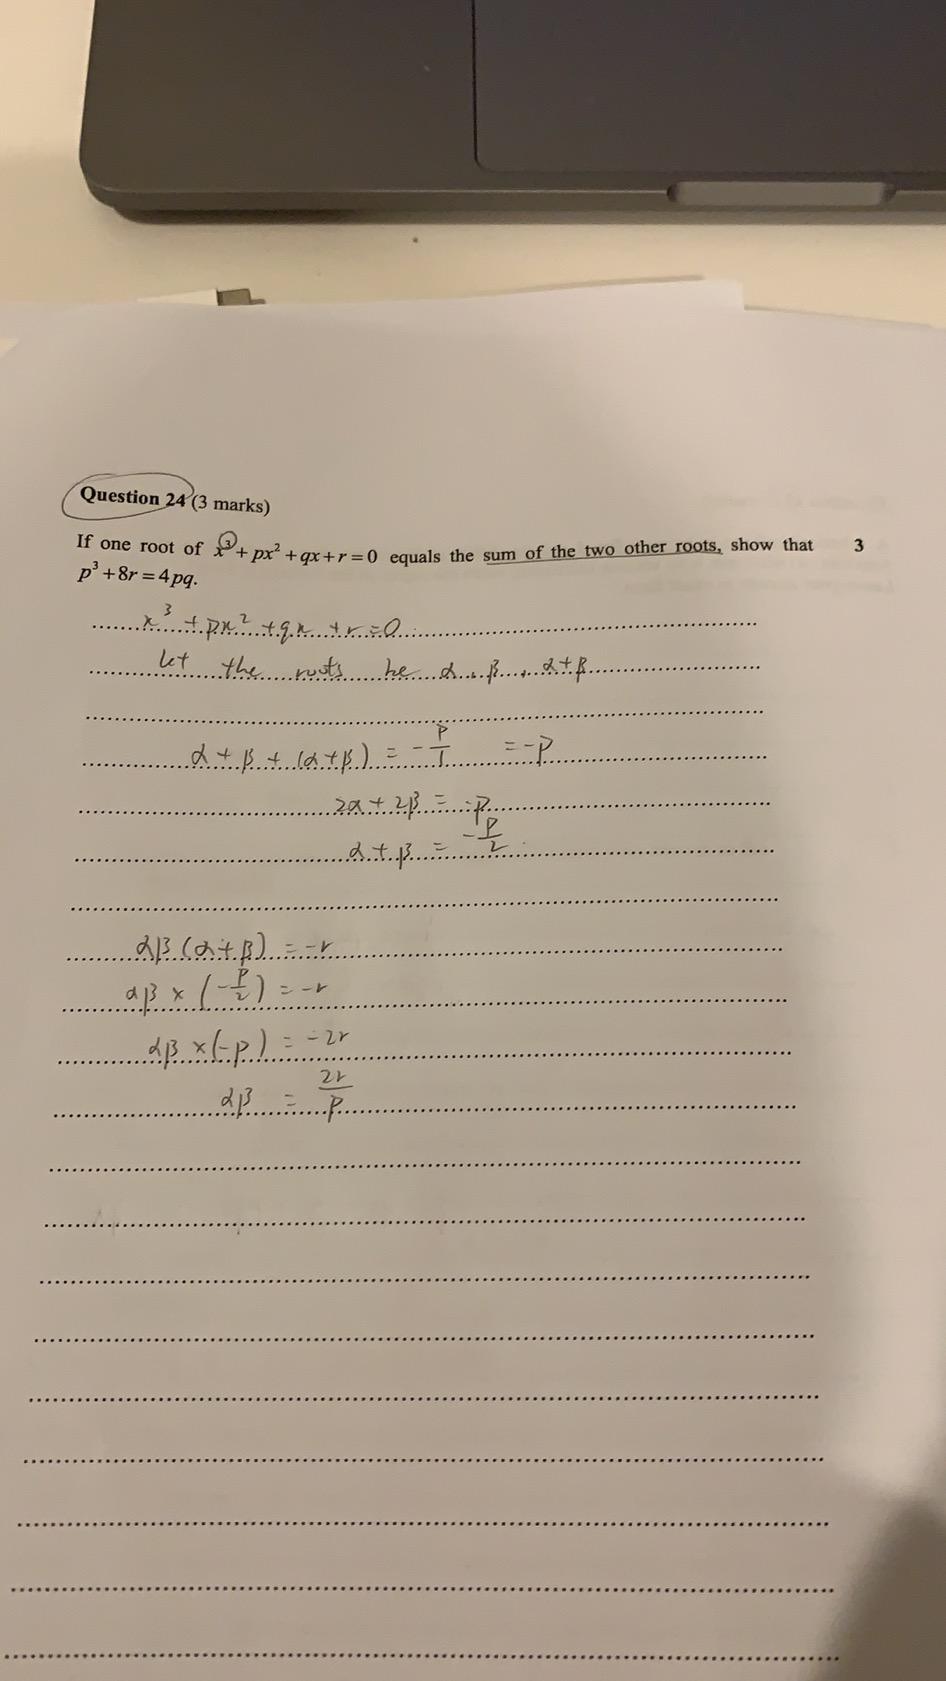 Question 24 (3 marks)
If one root of x³ + px² + qx + r = 0 equals the sum of the two other roots, show that 3
p³ + 8r = 4pq.
x³ + px² + qx + r = 0
let the roots be α, β, α+β
α + β + (α+β) = -P/1 = -P
2α + 2β = -P
α + β = -P/2
αβ(α+β) = -r
αβ × (-P/2) = -r
αβ × (-p) = -2r
αβ = 2r/P